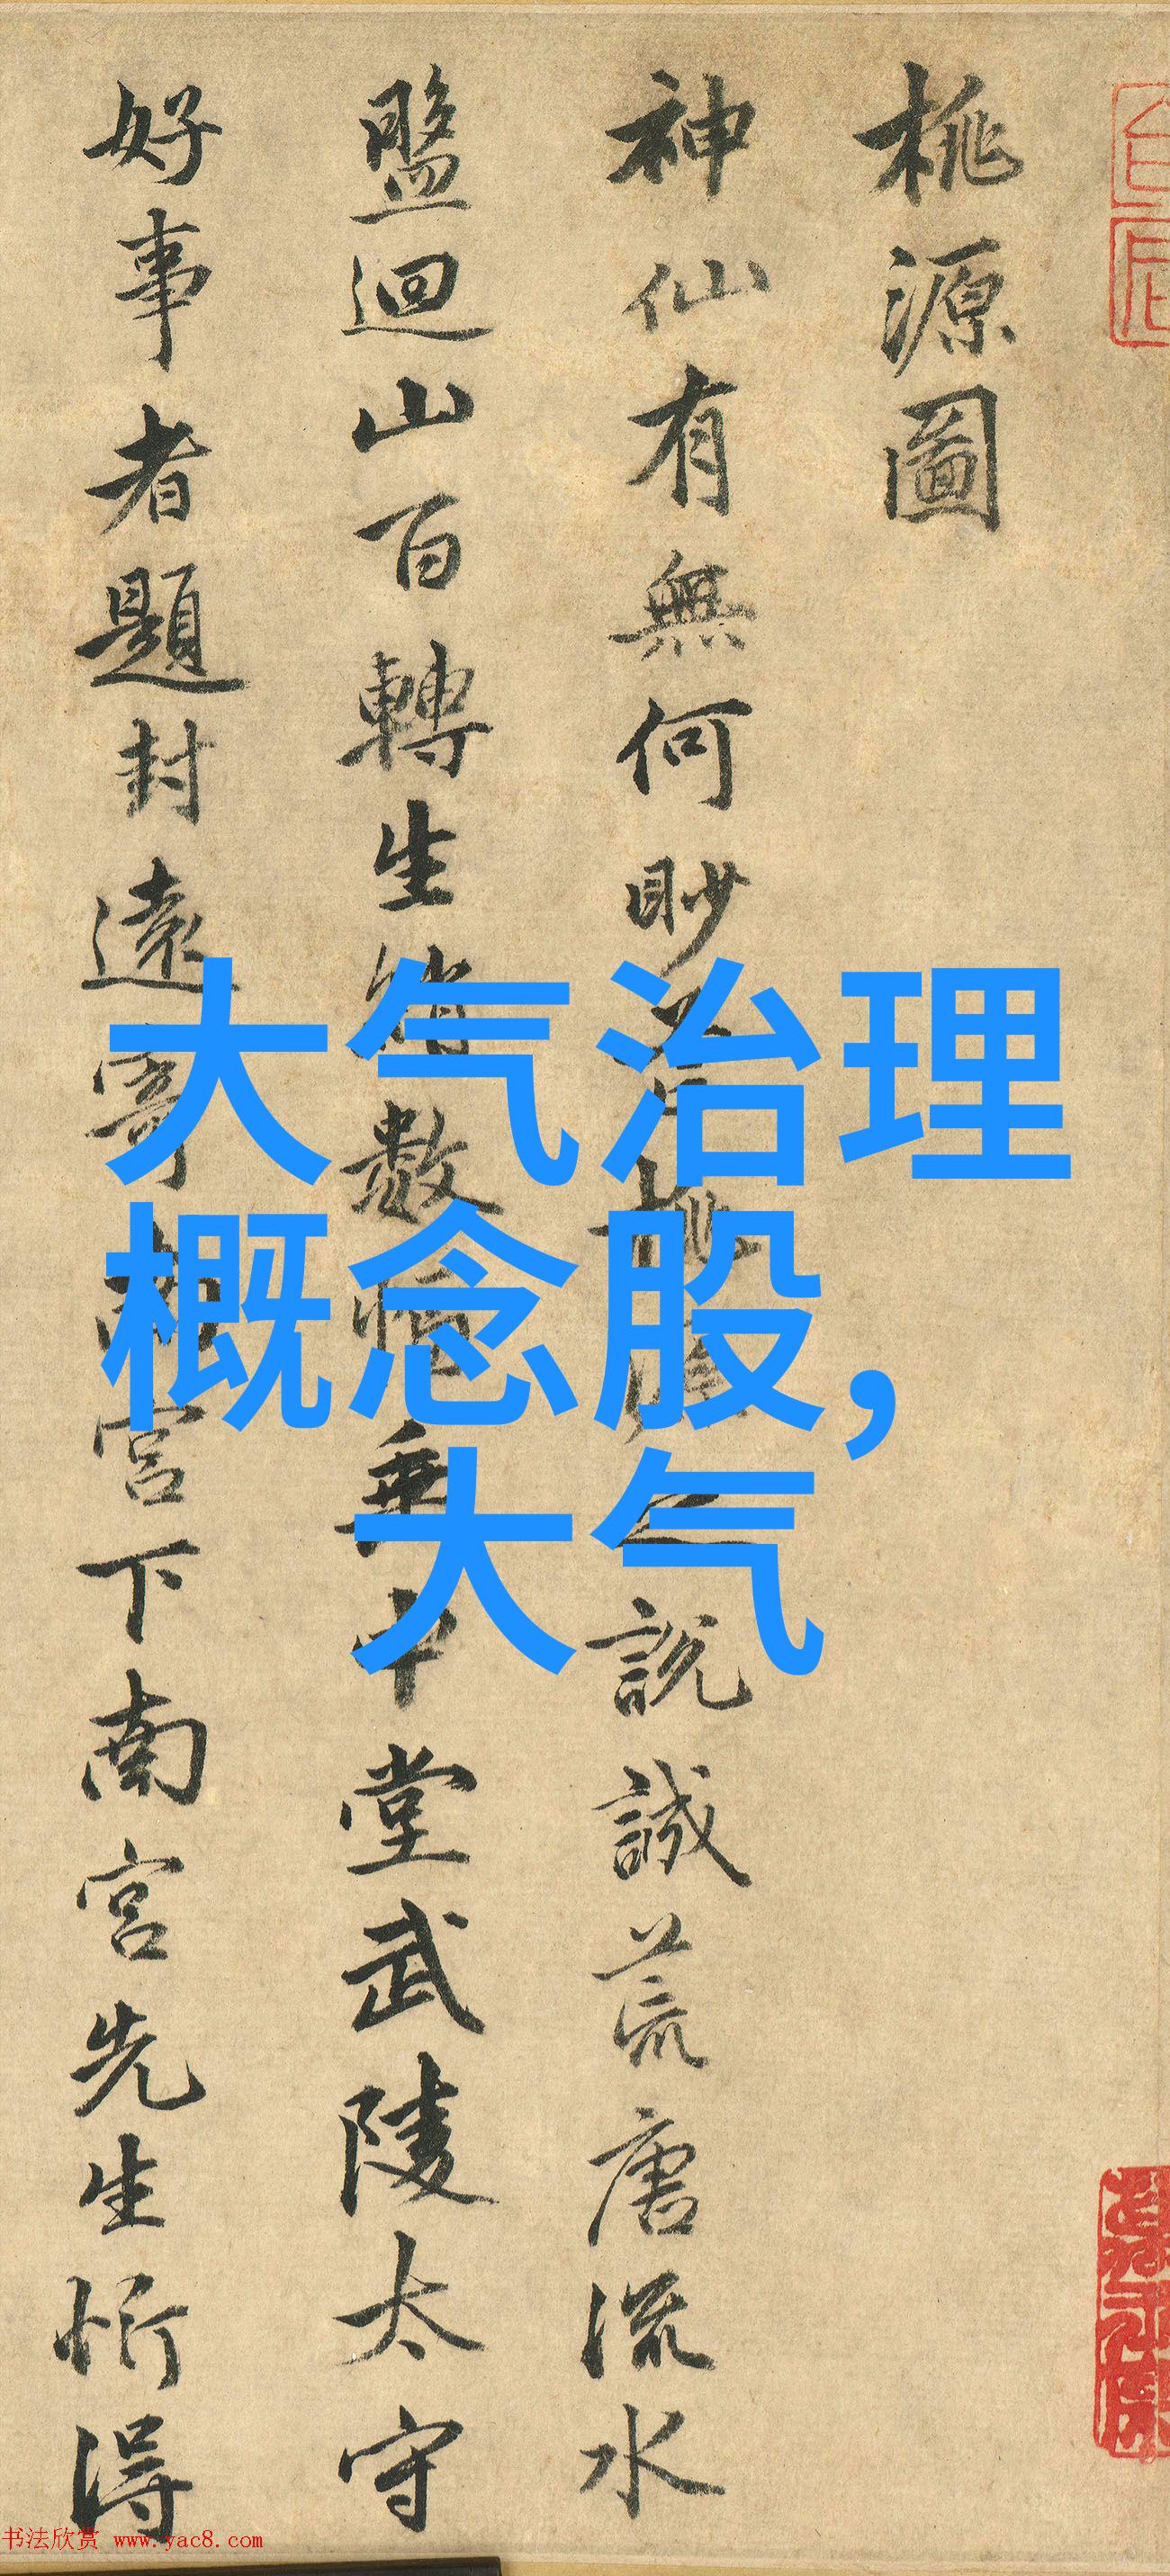 桃源圖
神仙有無何眇芒桃源之說誠荒唐流水
盤迴山百轉生綃數幅垂中堂武陵太守
好事者題封遠寄南宮下南宮先生忻得
大气治理
概念股，
大气
书法欣赏 www.yac8.com